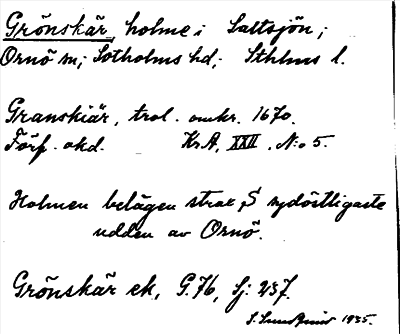 Grönskär, holme i Saltsjön;
Ornö sn; Sotholms hd; Sthlms l.
Granskiär, trol. omkr. 1670.
Förf. okd. Kr.A, XXII, N:o 5.
Holmen belägen strax S sydöstligaste
udden av Ornö.
Grönskär ek, G.76, Sj: 237.
1935.